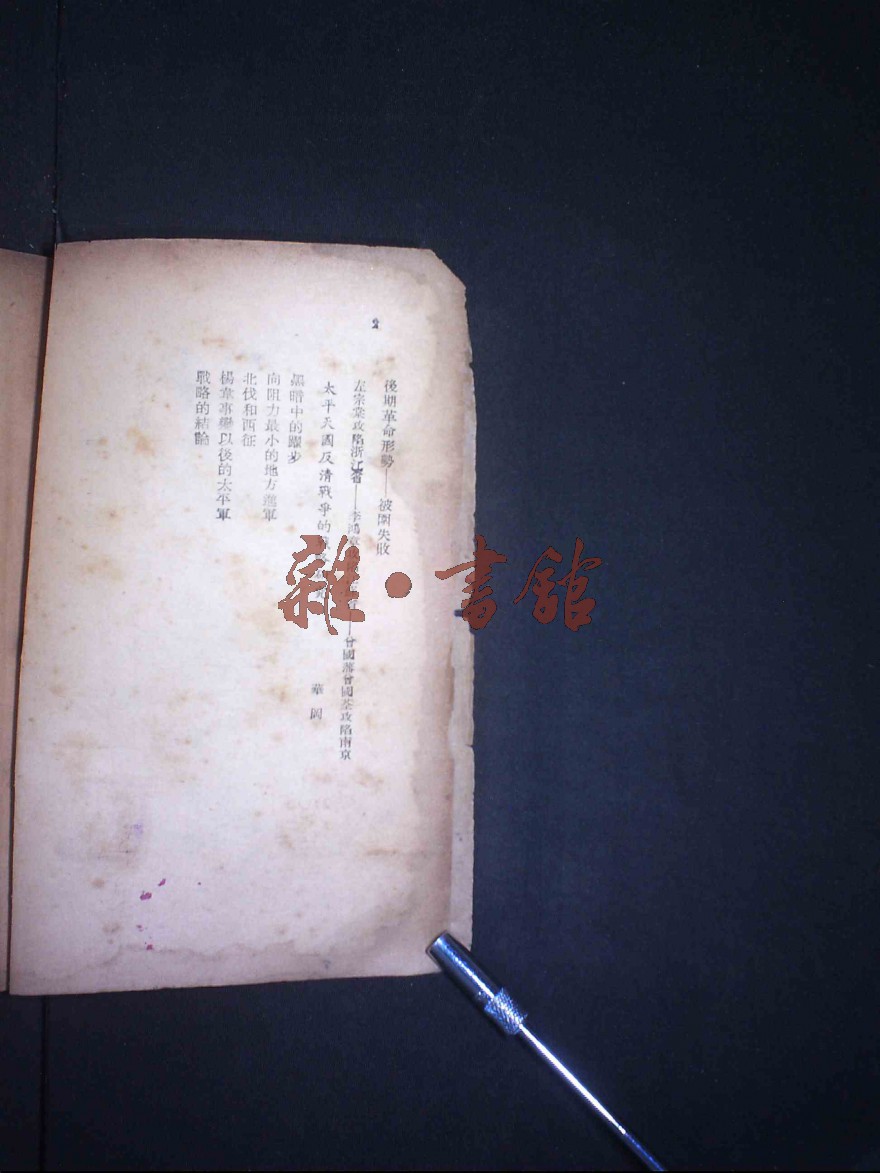 2
後期革命形勢——被圍失敗
左宗棠攻陷浙江省——李鴻章——曾國藩曾國荃攻陷南京
太平天國反清戰爭的
華崗
黑暗中的躍步
向阻力最小的地方進軍
北伐和西征
楊韋事變以後的太平軍
戰略的結論
雜·書館